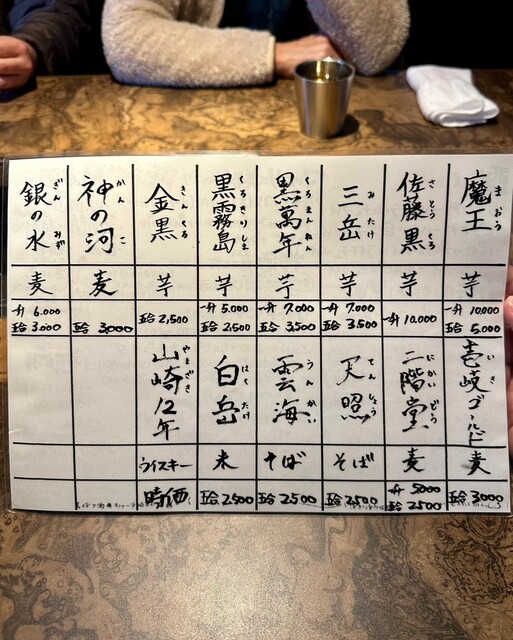 魔王 まおう
芋
一升 10,000
五合 5,000
佐藤黒 さとうくろ
芋
一升 10,000
三岳 みたけ
芋
一升 7,000
五合 3,500
黒萬年 くろまんねん
芋
一升 7,000
五合 3,500
黒霧島 くろきりしま
芋
一升 5,000
五合 2,500
金黒 きんくろ
芋
五合 2,500
神の河 かんこ
麦
五合 3,000
銀の水 ぎんみず
麦
一升 6,000
五合 3,000
壱岐ゴールド いき
麦
五合 3000
二階堂 にかいどう
麦
一升 5000
五合 2500
天照 てんしょう
そば
五合 2500
雲海 うんかい
そば
五合 2500
白岳 はくたけ
米
五合 2500
山崎12年 やまざき
ウイスキー
時価